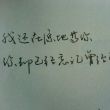 我还在原地等你
你却已经忘记曾经